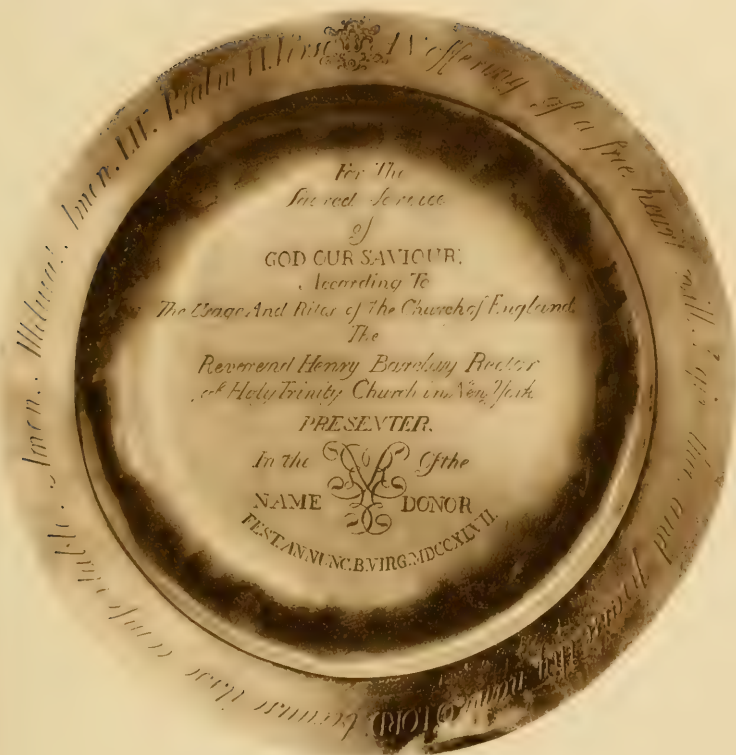 offering of a free heart will I give and praise thy name O LORD because comfortable. Amen. Amen. LIV. Psalm VI. Verse
For The
Sacred Service
of
GOD OUR SAVIOUR:
According To
The Usage And Rites of the Church of England
The
Reverend Henry Barclay Rector
of Holy Trinity Church in New York
PRESENTER.
In the Of the
NAME DONOR
FEST.ANNUNC.B.VIRG.MDCCXLVII.